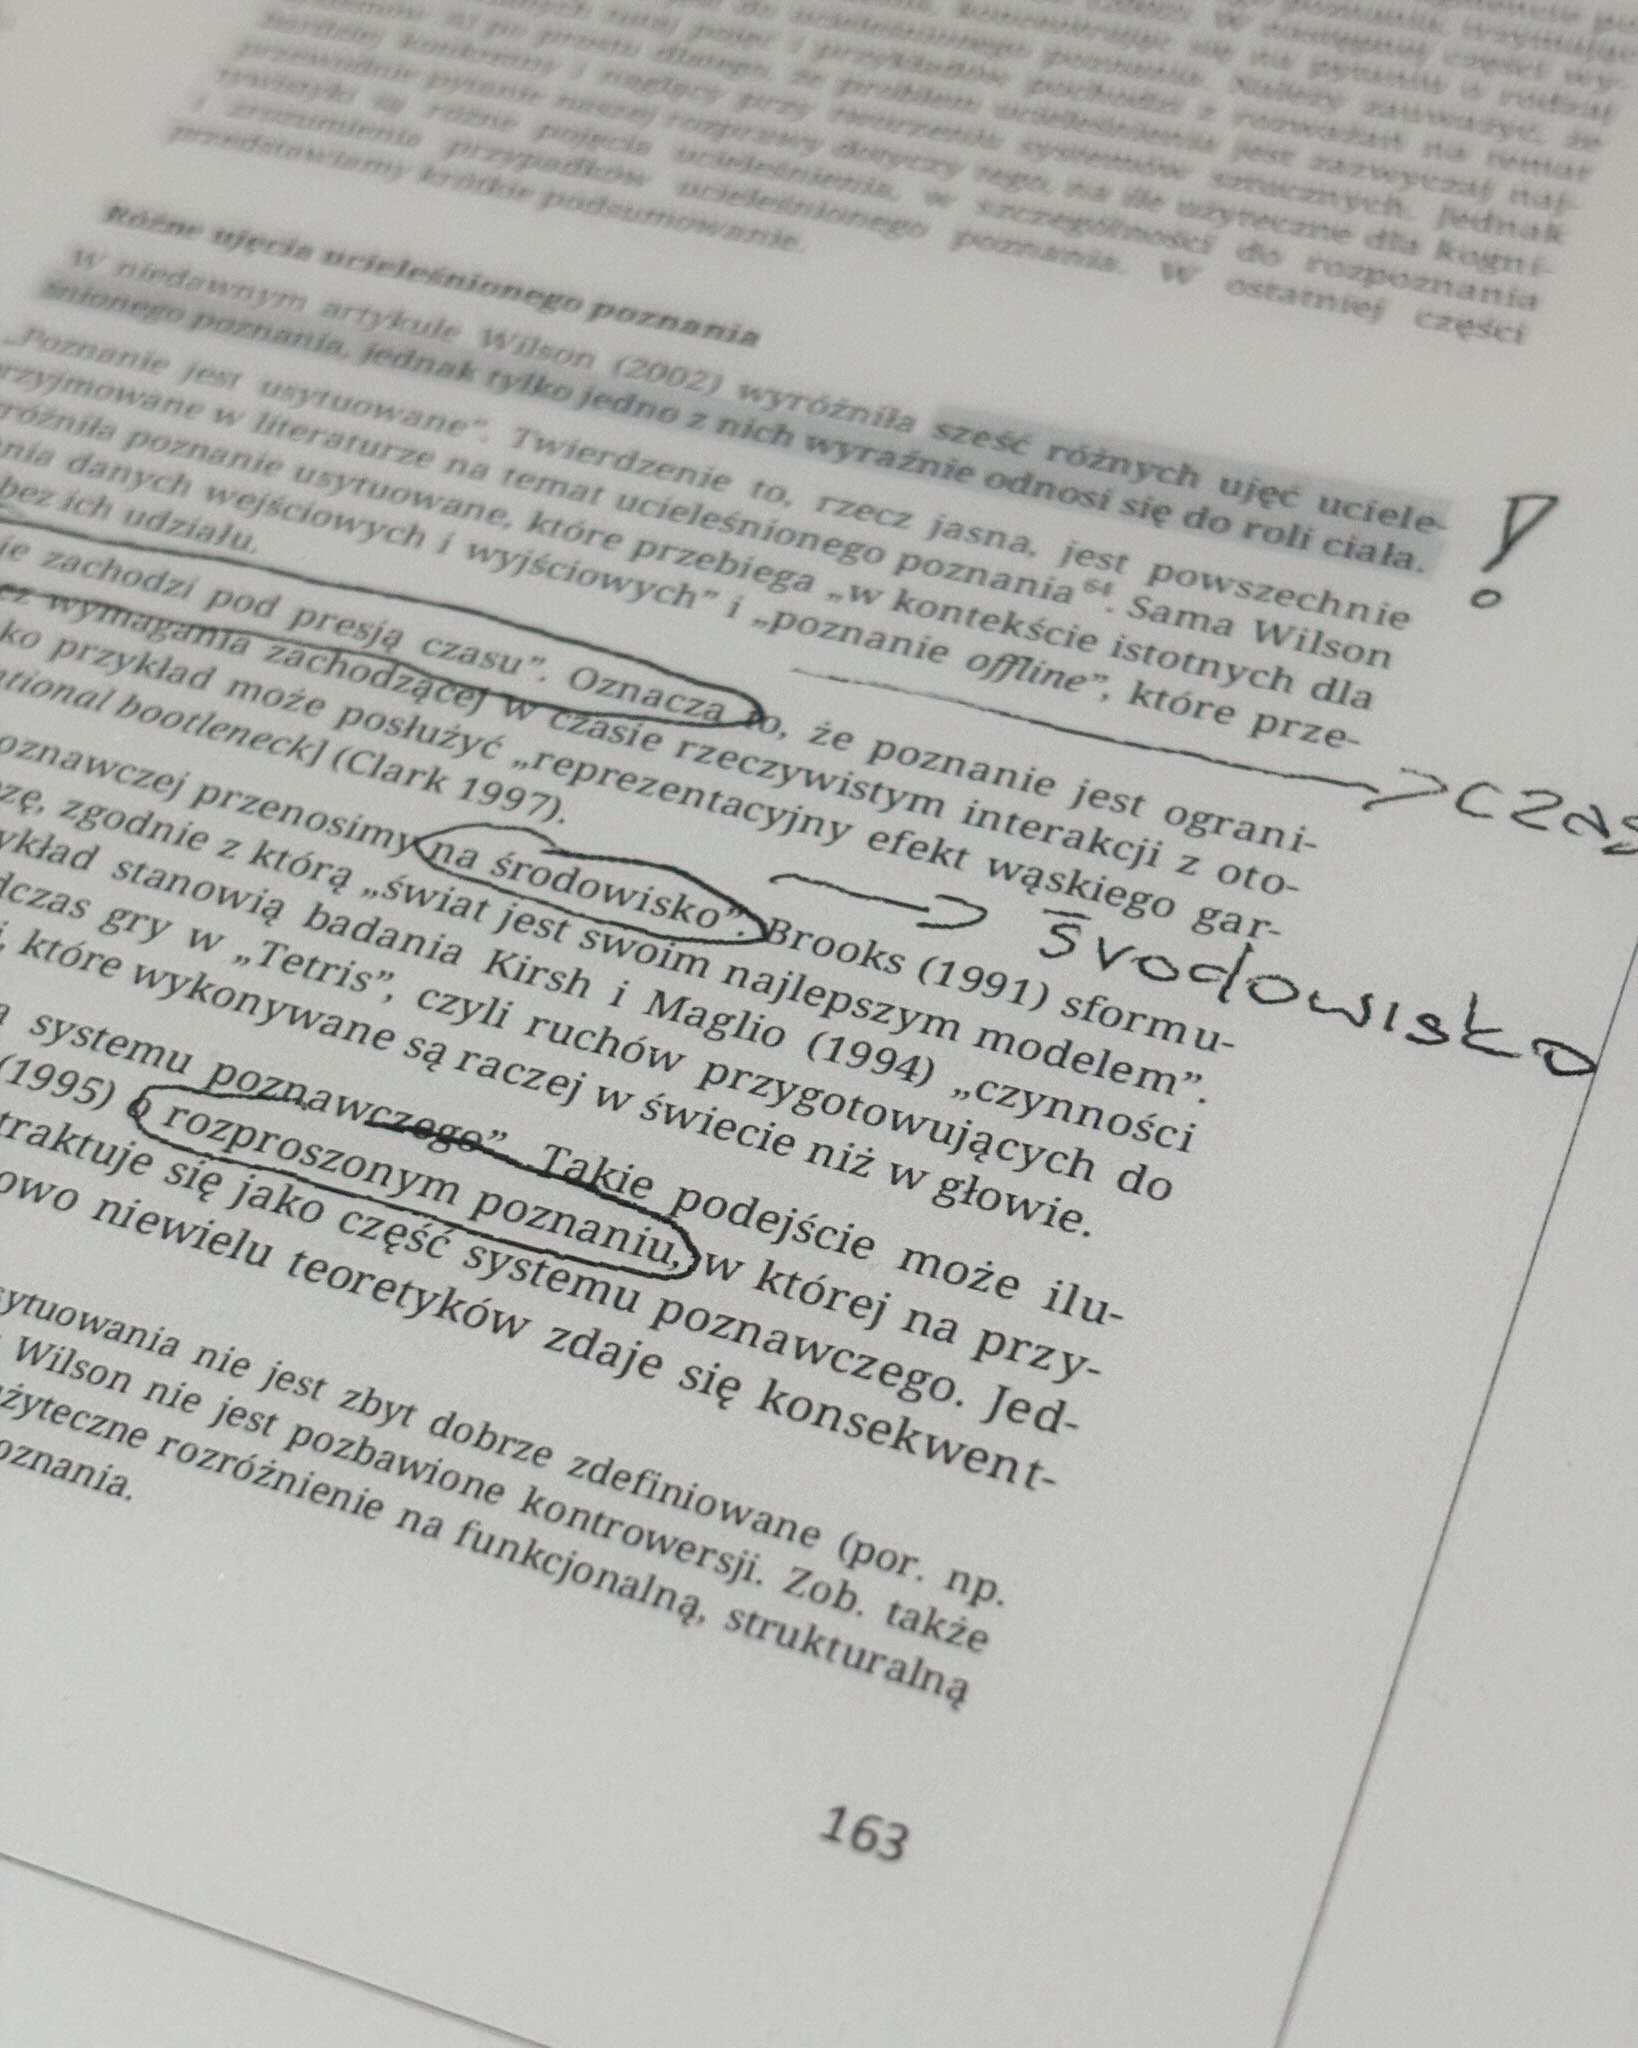 bardziej konkretny i naglący przy tworzeniu systemów sztucznych. Jednak
przewodnie pytanie naszej rozprawy dotyczy tego, na ile użyteczne dla kogni-
tywistyki są różne pojęcia ucieleśnienia, w szczególności do rozpoznania
i zrozumienia przypadków ucieleśnionego poznania. W ostatniej części
przedstawiamy krótkie podsumowanie.
Różne ujęcia ucieleśnionego poznania
W niedawnym artykule Wilson (2002) wyróżniła sześć różnych ujęć uciele-
śnionego poznania, jednak tylko jedno z nich wyraźnie odnosi się do roli ciała.
!
„Poznanie jest usytuowane”. Twierdzenie to, rzecz jasna, jest powszechnie
przyjmowane w literaturze na temat ucieleśnionego poznania64. Sama Wilson
różniła poznanie usytuowane, które przebiega „w kontekście istotnych dla
nia danych wejściowych i wyjściowych” i „poznanie offline”, które prze-
bez ich udziału.
czas
je zachodzi pod presją czasu”. Oznacza to, że poznanie jest ograni-
ez wymagania zachodzącej w czasie rzeczywistym interakcji z oto-
ko przykład może posłużyć „reprezentacyjny efekt wąskiego gar-
ational bootleneck] (Clark 1997).
środowisko
oznawczej przenosimy na środowisko”. Brooks (1991) sformu-
zę, zgodnie z którą „świat jest swoim najlepszym modelem”.
ykład stanowią badania Kirsh i Maglio (1994) „czynności
dczas gry w „Tetris”, czyli ruchów przygotowujących do
i, które wykonywane są raczej w świecie niż w głowie.
a systemu poznawczego”. Takie podejście może ilu-
(1995) o rozproszonym poznaniu, w której na przy-
traktuje się jako część systemu poznawczego. Jed-
owo niewielu teoretyków zdaje się konsekwent-
sytuowania nie jest zbyt dobrze zdefiniowane (por. np.
Wilson nie jest pozbawione kontrowersji. Zob. także
użyteczne rozróżnienie na funkcjonalną, strukturalną
oznania.
163